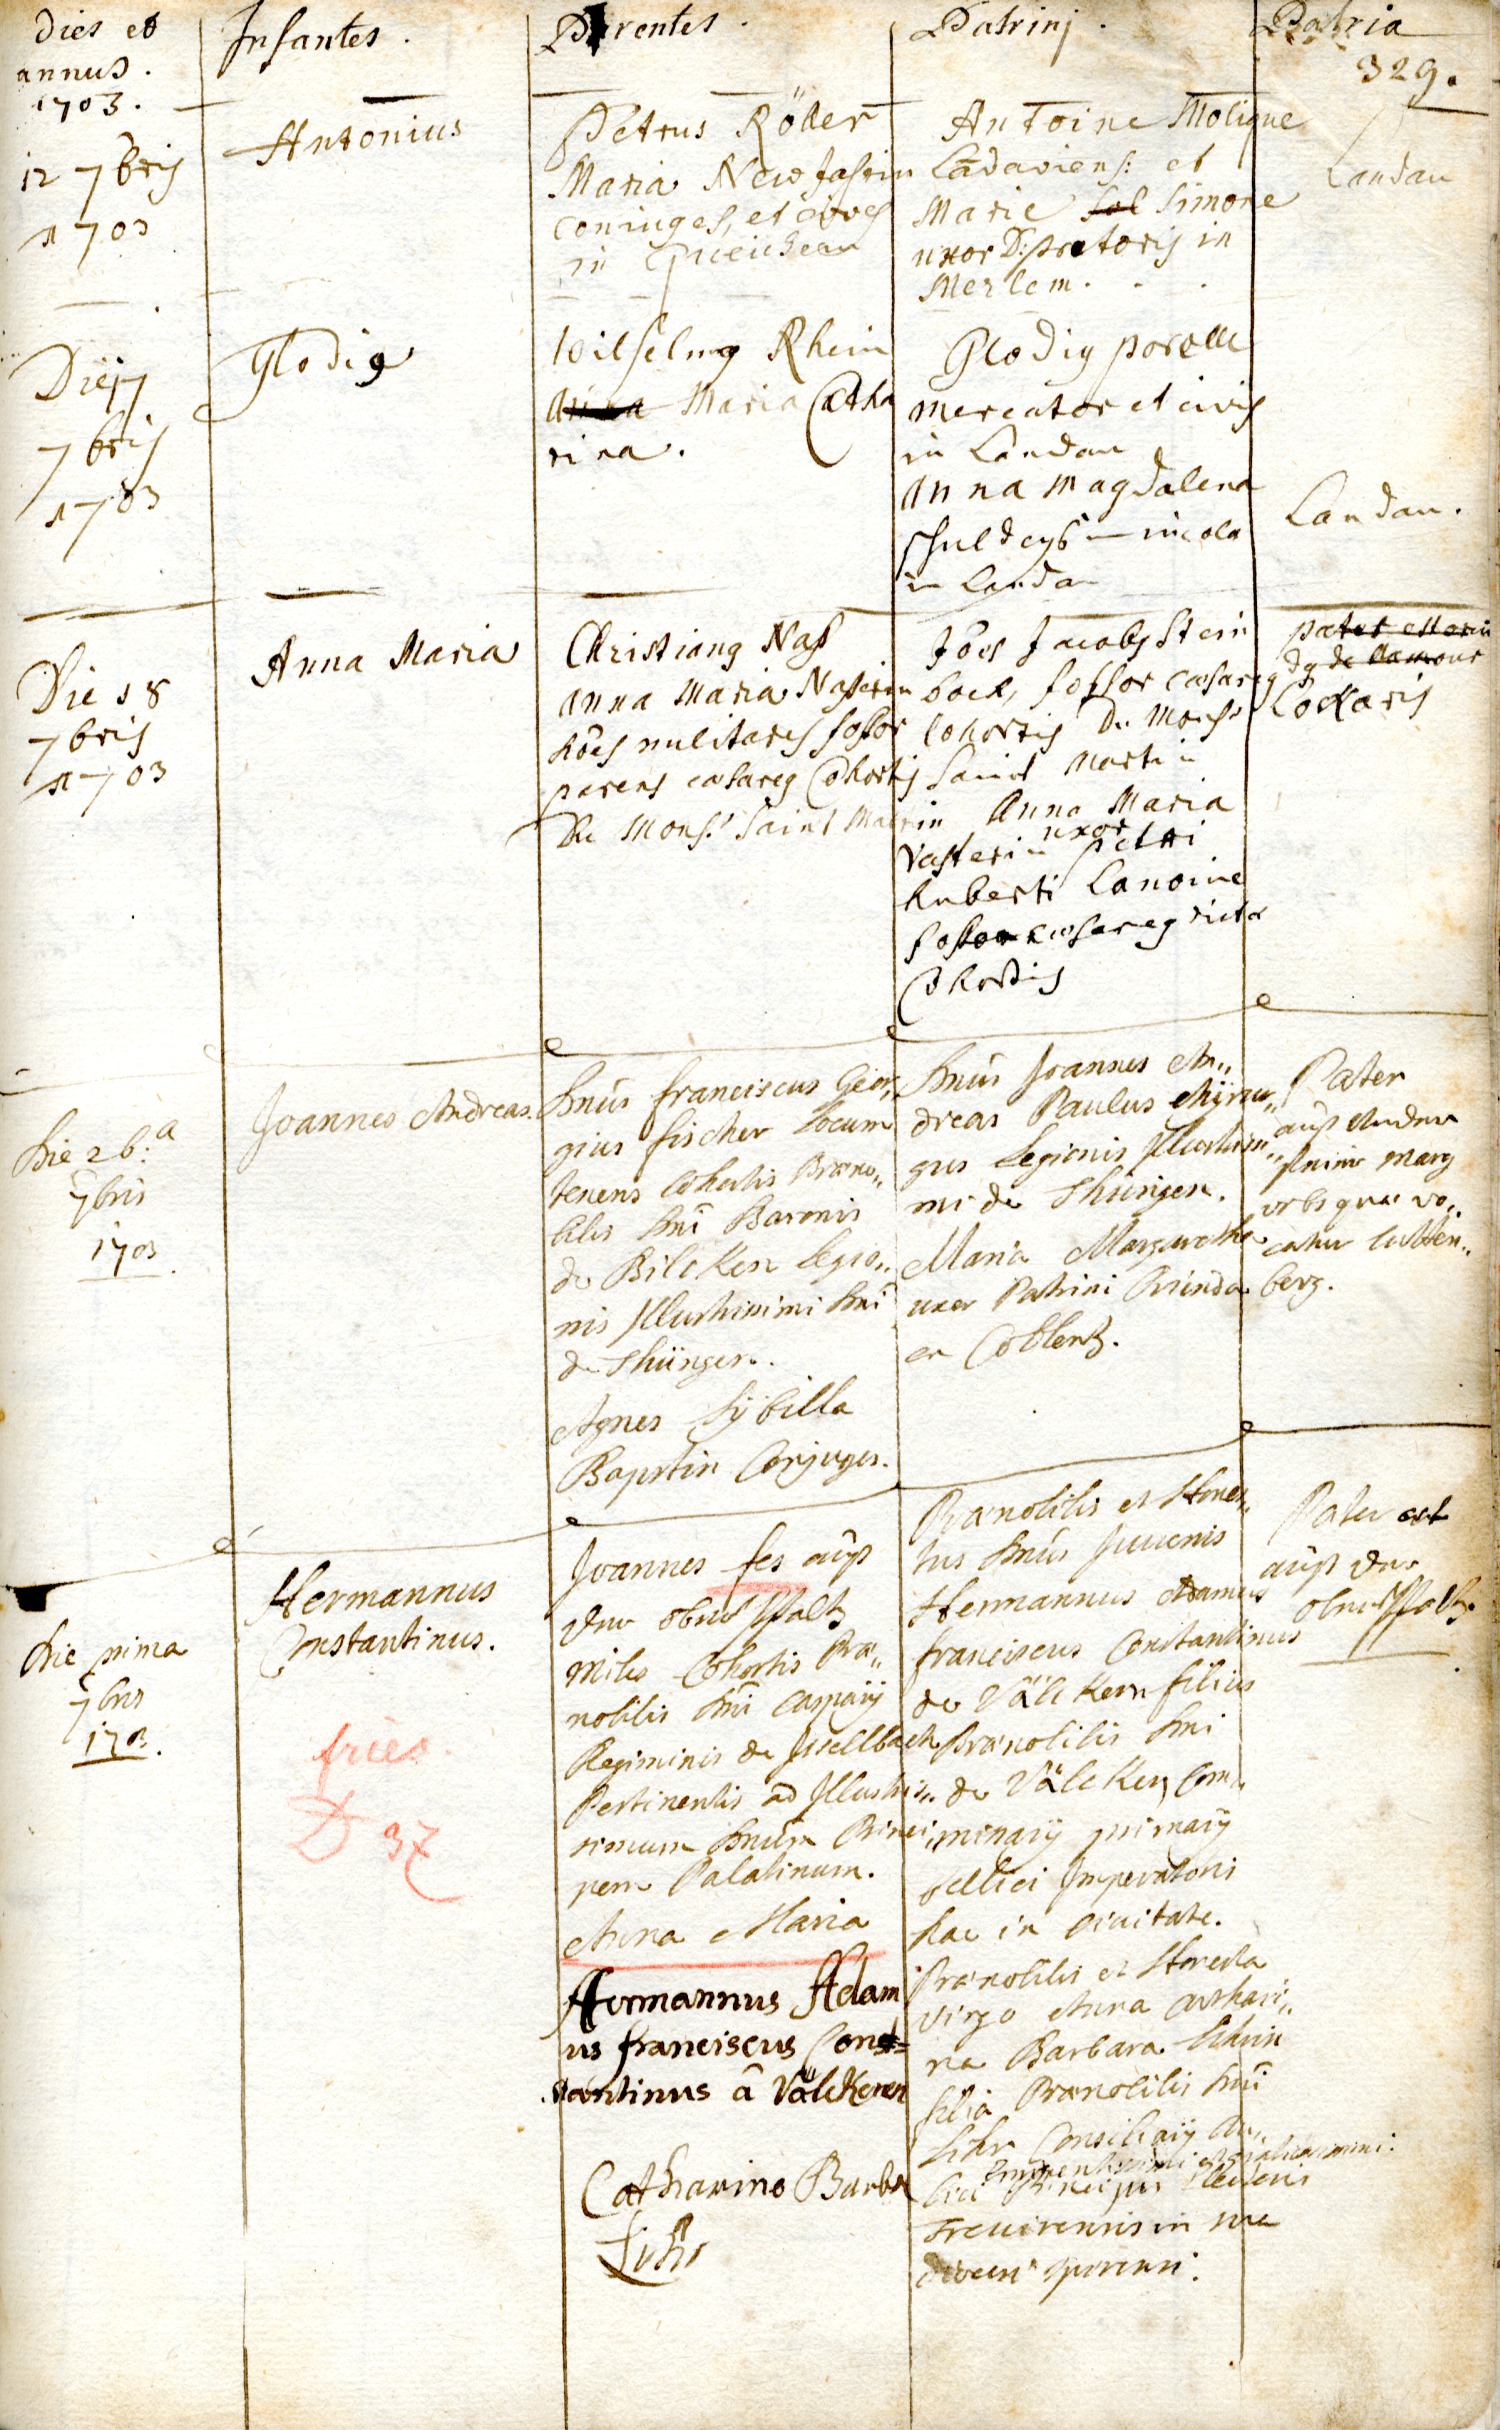 dies et
annus.
1703.
Infantes.
Parentes.
Patrinj.
Patria
329.
12 7bris
1703
Antonius
Petrus Röder
Maria
coniuges, et cives
in Queicheim
Antoine Molique
Landaviens: et
Marie Simone
uxor D: prætoris in
Merlem.
Landau
Die 17
7bris
1703
Glodig
Wilhelmg Rhein
Maria Catha
rina.
Glodig porelle
mercator et civis
in Landau
Anna Magdalena
Schuldeys incola
in Landau
Landau.
Die 18
7bris
1703
Anna Maria
Christiang Nass
Anna Maria Nasserin
parens cæsareg Cohortis
Du Mons.r Saint Martin
Jôes Jacobg Stein
bock, fossor cæsareg
Cohortis Du Mons.r
Saint Martin
Anna Maria
Vasterin uxor Petri
Ruberti Lanoine
Cohortis
pater
Die 26.a
7bris
1703
Joannes Andreas.
Dnûs Franciscus Geor„
gius Fischer Locum
tenens Cohortis Præno„
bilis Dnî Baronis
de Bilcken Legio„
nis Illustrissimi Dnî
de Thüngen.
Agnes Sÿbilla
Baptistin Conjuges.
Dnûs Joannes An„
dreas Paulus Chÿrur„
gus Legionis Illustrissi„
mi de Thüngen.
Maria Margaretha
uxor Patrini Oriunda
ex Coblentz.
Pater
auß
urbs quæ vo„
catur Cutten„
berg.
Die prima
7bris
1703.
Hermannus
Constantinus.
fries.
D 37
Joannes fes auß
der ober Pfaltz
miles Cohortis Præ„
nobilis Dnî Caspary
Regiminis de Isselbach
Pertinentis ad Illustris„
simum Dnûm Princi„
pem Palatinum.
Anna Maria
Hermannus Adam
us franciscus Cons=
tantinus â Välckeren
Catharina Barba
Lihr
Prænobilis et Hones„
tus Dnûs Juvenis
Hermannus Adamus
franciscus Constantinus
de Välckern filius
Prænobilis Dnî
de Välckern Com„
misarÿ primarÿ
bellici Imperatoris
hac in Civitate.
Prænobilis et Honesta
virgo Anna Cathari„
na Barbara Lihrin
filia Prænobilis Dnî
Lihr Consiliarÿ Au„
lici Principis Electoris
Trevirensis in
Pater est
auß der
ober Pfaltz.